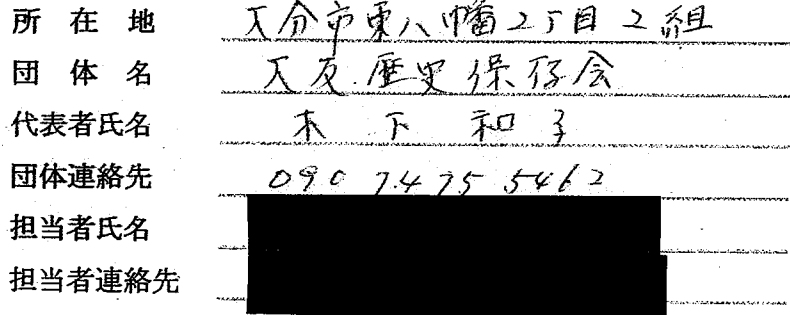 所在地 大分市東八幡2丁目2組
団体名 大友歴史保存会
代表者氏名 木下和子
団体連絡先 090 7475 5462
担当者氏名
担当者連絡先